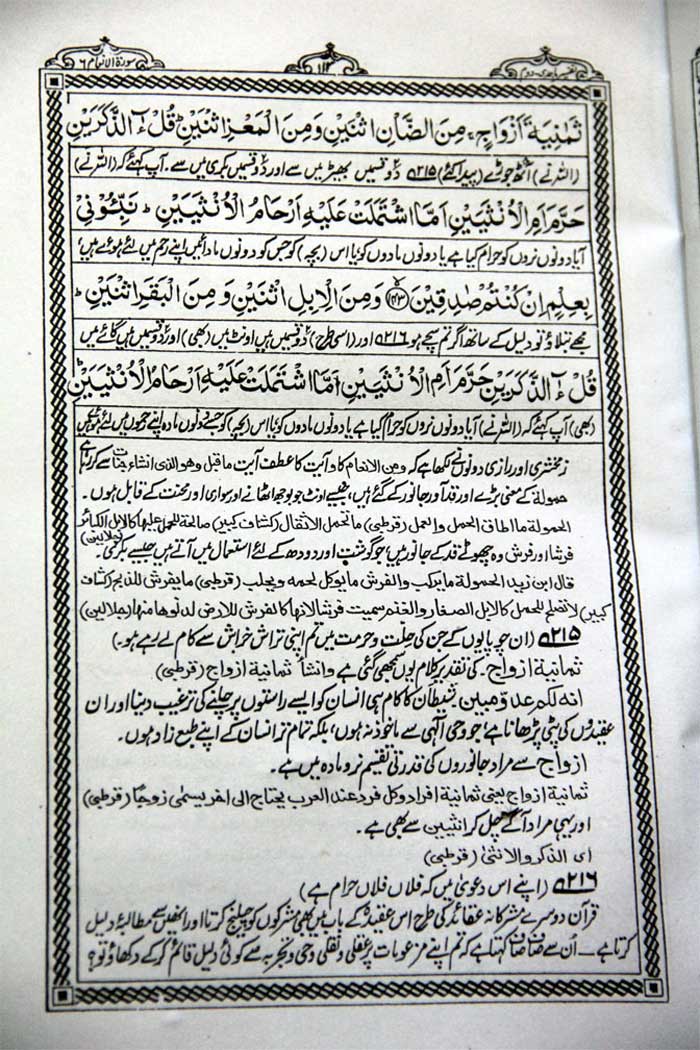 تفسیر ماجدی - دوم
۱۱۲
سورۃ الانعام ٦
ثَمٰنِیَةَ اَزْوَاجٍ ۚ مِنَ الضَّاْنِ اثْنَیْنِ وَمِنَ الْمَعْزِ اثْنَیْنِ ؕ قُلْ ءٰٓالذَّکَرَیْنِ
(اللہ نے) آٹھ جوڑے (پیدا کئے) ۵۲۱۵ دو قسمیں بھیڑ میں سے اور دو قسمیں بکری میں سے۔ آپ کہئے کہ (اللہ نے)
حَرَّمَ اَمِ الْاُنْثَیَیْنِ اَمَّا اشْتَمَلَتْ عَلَیْهِ اَرْحَامُ الْاُنْثَیَیْنِ ؕ نَبِّـُٔوْنِیْ
آیا دونوں نروں کو حرام کیا ہے یا دونوں مادوں کو یا اس (بچہ) کو جس کو دونوں مادائیں اپنے رحم میں لئے ہوئے ہیں؛
بِعِلْمٍ اِنْ کُنْتُمْ صٰدِقِیْنَ ﴿۱۴۳﴾ وَمِنَ الْاِبِلِ اثْنَیْنِ وَمِنَ الْبَقَرِ اثْنَیْنِ ؕ
مجھے بتلاؤ تو دلیل کے ساتھ اگر تم سچے ہو ۵۲۱۶ اور (اسی طرح) دو قسمیں ہیں اونٹ میں (بھی) اور دو قسمیں ہیں گائے میں
قُلْ ءٰٓالذَّکَرَیْنِ حَرَّمَ اَمِ الْاُنْثَیَیْنِ اَمَّا اشْتَمَلَتْ عَلَیْهِ اَرْحَامُ الْاُنْثَیَیْنِ ؕ
(بھی) آپ کہئے کہ (اللہ نے) آیا دونوں نروں کو حرام کیا ہے یا دونوں مادوں کو یا اس (بچہ) کو جسے دونوں مادہ اپنے رحموں میں لئے ہوئے ہیں
زمخشری اور رازی دونوں نے لکھا ہے کہ ومن الانعام کا و آیت کا عطف آیت ما قبل وهو الذی انشاء جنات سے کر رہا ہے
حمولة کے معنی بڑے اور قدآور جانور کے گئے ہیں، جیسے اونٹ جو بوجھ اٹھانے اور سواری اور محنت کے قابل ہوں۔
الحمولة ما اطاق الحمل والعمل (قرطبی) ما تحمل الاثقال (کشاف کبیر) صالحة للحمل علیها کالابل الکبار (جلالین)
فرشا اور فرش وہ چھوٹے قد کے جانور ہیں؛ جو گوشت اور دودھ کے لئے استعمال میں آتے ہیں جیسے بکری۔
قال ابن زید الحمولة ما یرکب والفرش ما یوکل لحمه ویحلب (قرطبی) ما یفرش للذبح (کشاف
کبیر) لا تصلح للحمل کالابل الصغار والغنم سمیت فرشا لانها کالفرش للارض لدنوها منها (جلالین)
۵۲۱۵ (ان چوپایوں کے جن کی حلّت و حرمت میں تم اپنی تراش خراش سے کام لے رہے ہو۔)
ثمانیة ازواج۔ کی تقدیر کلام یوں سمجھی گئی ہے وانشأ ثمانیة ازواج (قرطبی)
انه لکم عدو مبین۔ شیطان کا کام ہی انسان کو ایسے راستوں پر چلنے کی ترغیب دینا اور ان
عقیدوں کی پٹی پڑھانا ہے؛ جو وحی الٰہی سے ماخوذ نہ ہوں، بلکہ تمام تر انسان کے اپنے طبع زاد ہوں۔
ازواج سے مراد جانوروں کی قدرتی تقسیم نر و مادہ میں ہے۔
ثمانیة ازواج یعنی ثمانیة افراد وکل فرد عند العرب یحتاج الی اخر یسمی زوجًا (قرطبی)
اور یہی مراد آگے چل کر انثیین سے بھی ہے۔
ای الذکر والانثی (قرطبی)
۵۲۱۶ (اپنے اس دعویٰ میں کہ فلاں فلاں حرام ہے)
قرآن دوسرے مشرکانہ عقائد کی طرح اس عقیدہ کے باب میں بھی مشرکوں کو چیلنج کرتا اور انھیں سے مطالبۂ دلیل
کرتا ہے۔ اُن سے صاف صاف کہتا ہے کہ تم اپنے مزعومات پر عقلی و نقلی وحی و تجربہ سے کوئی دلیل قائم کر کے دکھاؤ تو؟